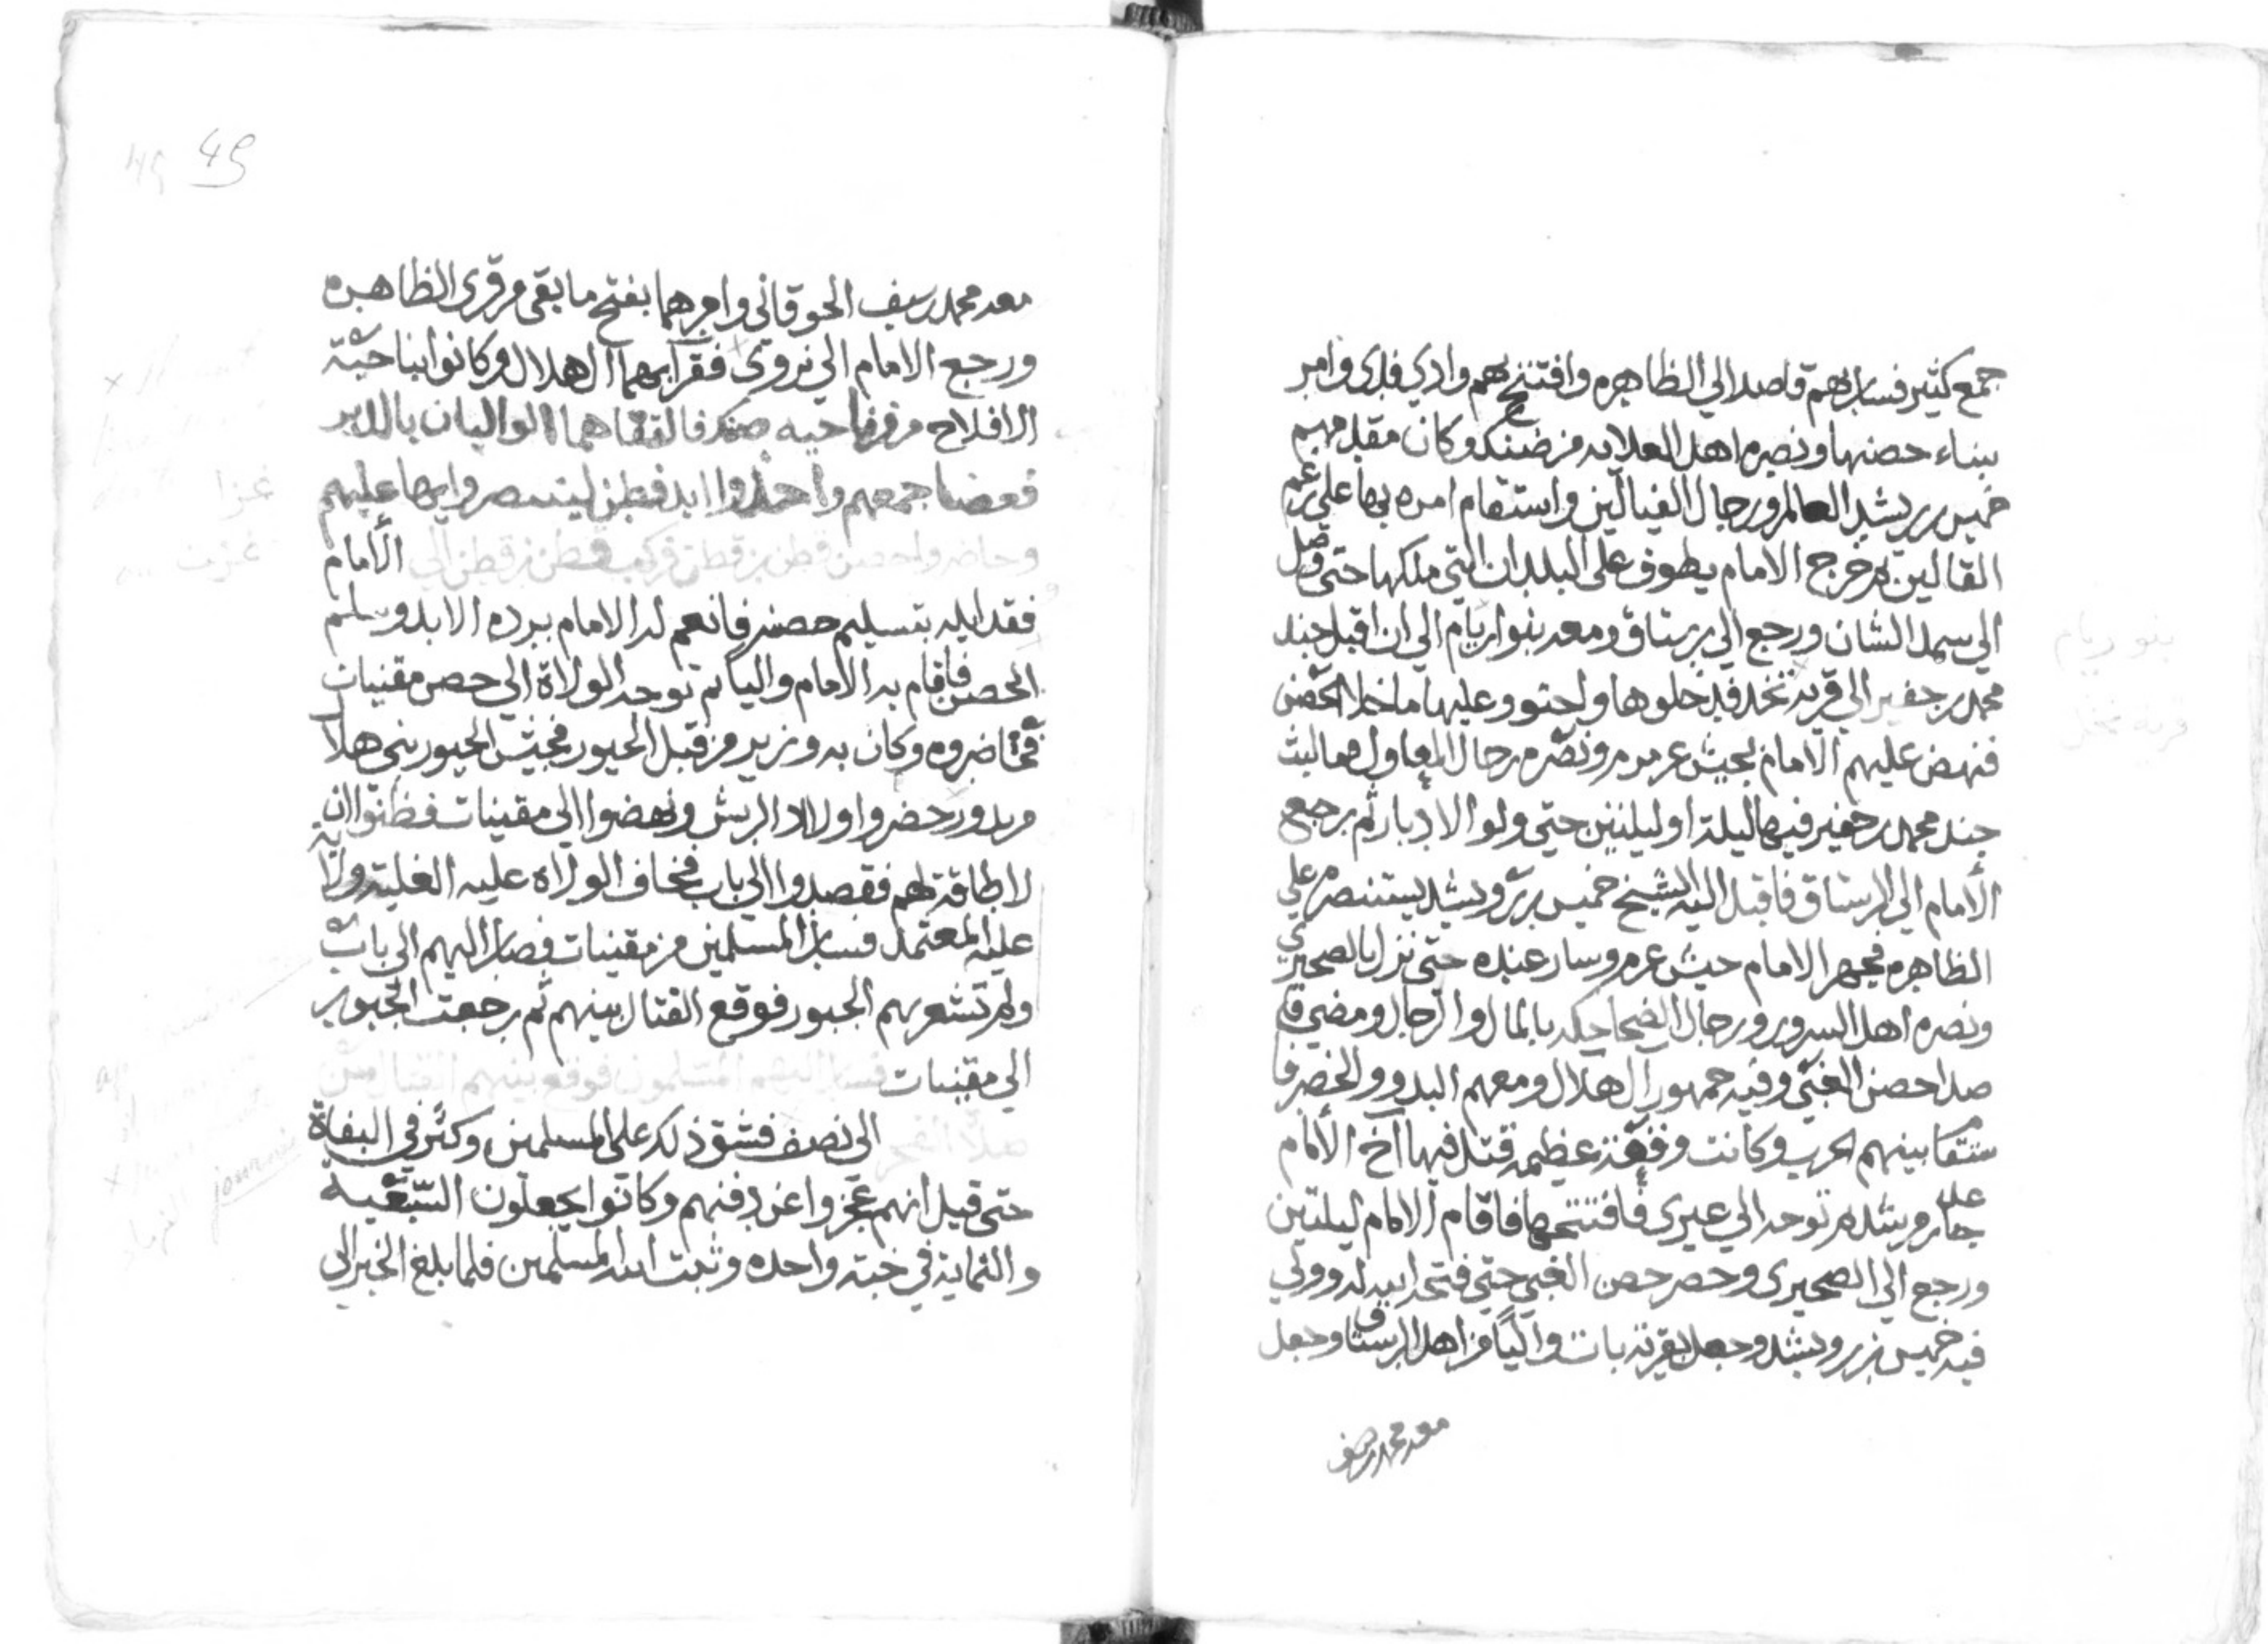 جمع كثير فسار بهم قاصدا الي الظاهره وافتتح بهم وادي فدى وامر
ببناء حصنها ونصره اهل العلايه من ضنك وكان مقدمهم
خميس بن رويشد العالم ورجال الغيالين واستقام امره بها على رغم
القالين ثم خرج الامام يطوف على البلدان التي ملكها حتى وصل
الي سمد الشان ورجع الي رستاق ومعه بنوا ريام الي ان اقبل جند
محمد بن جفير الي قرية نخل فدخلوها واحتووعليها ماخلا الحصن
فنهض عليهم الامام بجيش عرمرم ونصره رجال المعاول فما لبث
جند محمد بن جفير فيها ليلة او ليلتين حتى ولو الادبار ثم رجع
الامام الي الرستاق فاقبل اليه الشيخ خميس بن رويشد يستنصره على
الظاهره فجهز الامام جيش عرم وسار عنده حتى نزل بالصخيري
ونصره اهل السرور ورجال الضحاحكه بالمال والرجال ومضي قا
صدا حصن الغبي وفيه جمهور ال هلال ومعهم البدو والحضر فا
ستقا بينهم الحرب وكانت وقعة عظيمه قتل فيها اخ الامام
جاعد بن مرشد ثم توجه الي عبرى فافتتحها فاقام الامام ليلتين
ورجع الي الصخيرى وحصر حصن الغبي حتى فتحه الله له وولي
فيه خميس بن رويشد وجعل بقرية بات واليا من اهل الرستاق وجعل
معه محمد بن سيف
49 49
معه محمد بن سيف الحوقاني وامرهما بفتح ما بقي من قرى الظاهره
ورجع الامام الي نزوى فقرا بهما ال هلال وكانوا بناحية
الافلاج من ناحيه ضنك فالتقاهما الواليان بالدير
ففضا جمعهم واخذوا ابل قطن لينتصروا بها عليهم
وحاضروا حصن قطن بن قطن فركب قطن بن قطن الي الامام
ففدا ابله بتسليم حصنه فانعم له الامام برده الابل وسلم
الحصن فاقام به الامام واليا ثم توجه الولاة الي حصن مقنيات
فحاضروه وكان به وزير من قبل الجبور فجيش الجبور بني هلال
من بدو وحضر واولاد الريش ونهضوا الي مقنيات فظنوا ان
لا طاقة لهم فقصدوا الي بات فخاف الولاة عليه الغلبة ولانه
عليه المعتمد فسار المسلمين من مقنيات فصار اليهم الي بات
ولم تشعر بهم الجبور فوقع القتال بينهم ثم رجعت الجبور
الي مقنيات فسار اليهم المسلمون فوقع بينهم القتال من
صلاة الفجر الي نصف فشق ذلك على المسلمين وكثر في البغاة
حتى قيل انهم عجزوا عن دفنهم وكانوا يجعلون السبعه
والثمانية في خبة واحده وثبت الله المسلمين فلما بلغ الخبر الي
بنو ريام
قرية نخل
غزا